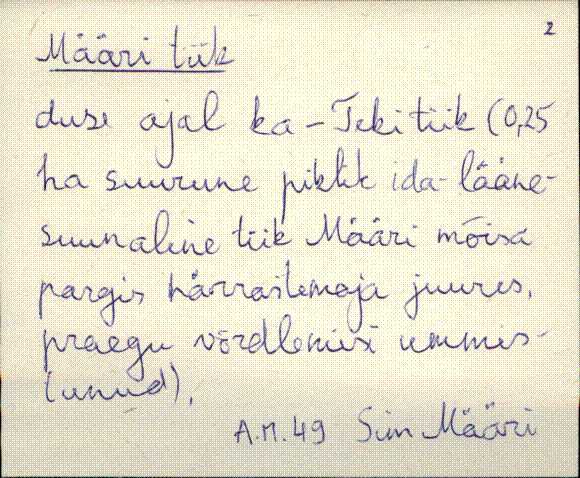 2
Määri tiik
duse ajal ka - Teki tiik (0,25
ha suurune piklik ida-lääne-
suunaline tiik Määri mõisa
pargis härrastemaja juures,
praegu võrdlemisi ummis-
tunud).
A.M. 49 Siin Määri